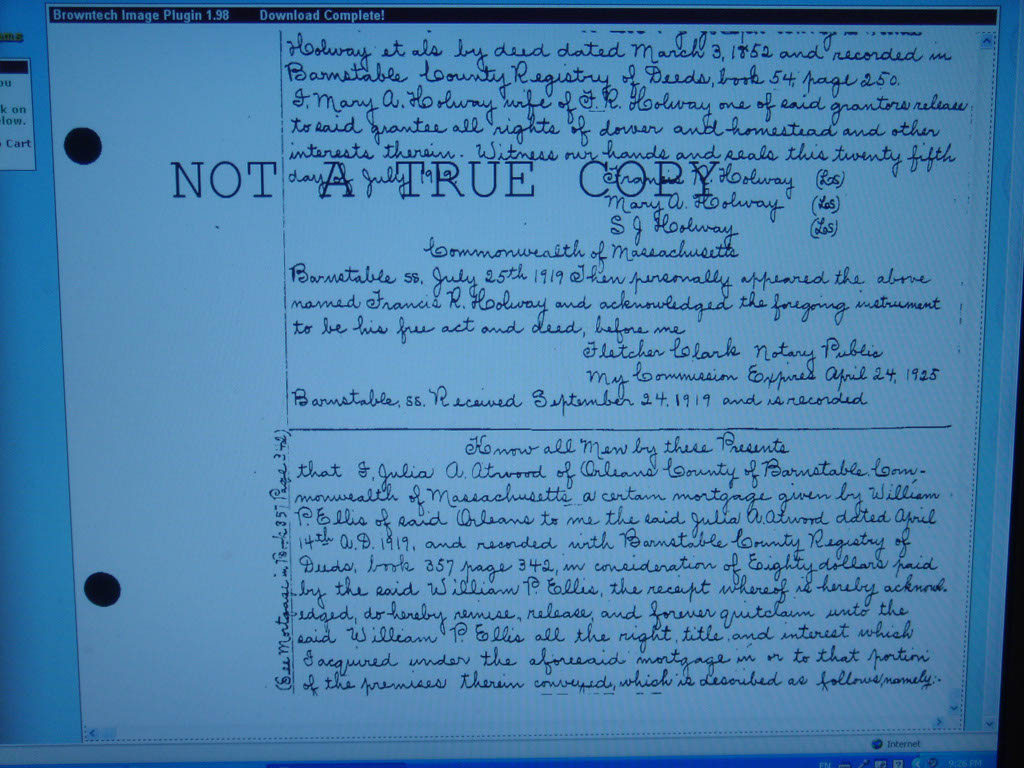 Browntech Image Plugin 1.98 Download Complete!
Holway et als by deed dated March 3, 1852 and recorded in
Barnstable County Registry of Deeds, book 54, page 250.
I, Mary A. Holway wife of F. R. Holway one of said grantors release
to said grantee all rights of dower and homestead and other
interests therein. Witness our hands and seals this twenty fifth
day of July
NOT A TRUE COPY
Francis R Holway (LS)
Mary A. Holway (LS)
S J Holway (LS)
Commonwealth of Massachusetts
Barnstable ss. July 25th 1919 Then personally appeared the above
named Francis R. Holway and acknowledged the foregoing instrument
to be his free act and deed, before me
Fletcher Clark Notary Public
My Commission Expires April 24, 1925
Barnstable, ss. Received September 24, 1919 and is recorded
Know all Men by these Presents
that I, Julia A. Atwood of Orleans County of Barnstable Com-
monwealth of Massachusetts a certain mortgage given by William
P. Ellis of said Orleans to me the said Julia A. Atwood dated April
14th A.D. 1919, and recorded with Barnstable County Registry of
Deeds, book 357 page 342, in consideration of Eighty dollars paid
by the said William P. Ellis, the receipt whereof is hereby acknowl-
edged, do hereby remise, release, and forever quitclaim unto the
said William P. Ellis all the right, title, and interest which
I acquired under the aforesaid mortgage in or to that portion
of the premises therein conveyed, which is described as follows, namely:-
(See Mortgage in Book 357 Page 342)
k on
elow.
Cart
Internet
EN
9:26 PM